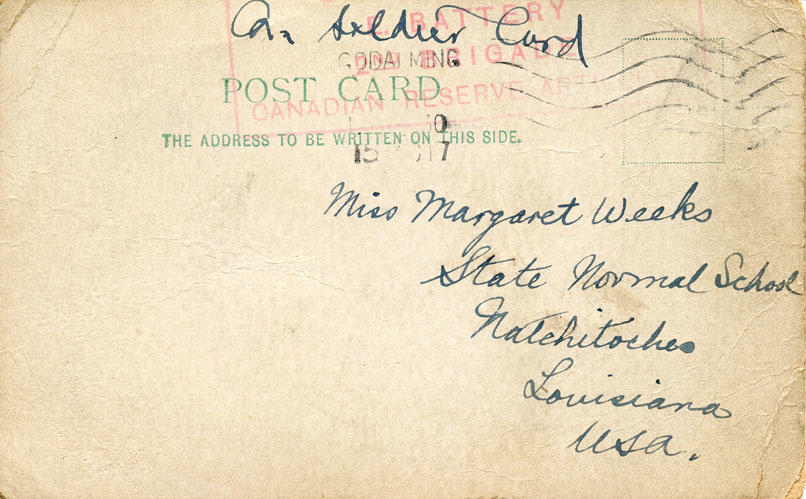 Soldier Card
E. BATTERY
GODALMING
2ND BRIGADE
POST CARD
CANADIAN RESERVE ARTILLERY
THE ADDRESS TO BE WRITTEN ON THIS SIDE.
15 17
Miss Margaret Weeks
State Normal School
Natchitoches
Louisiana
USA.